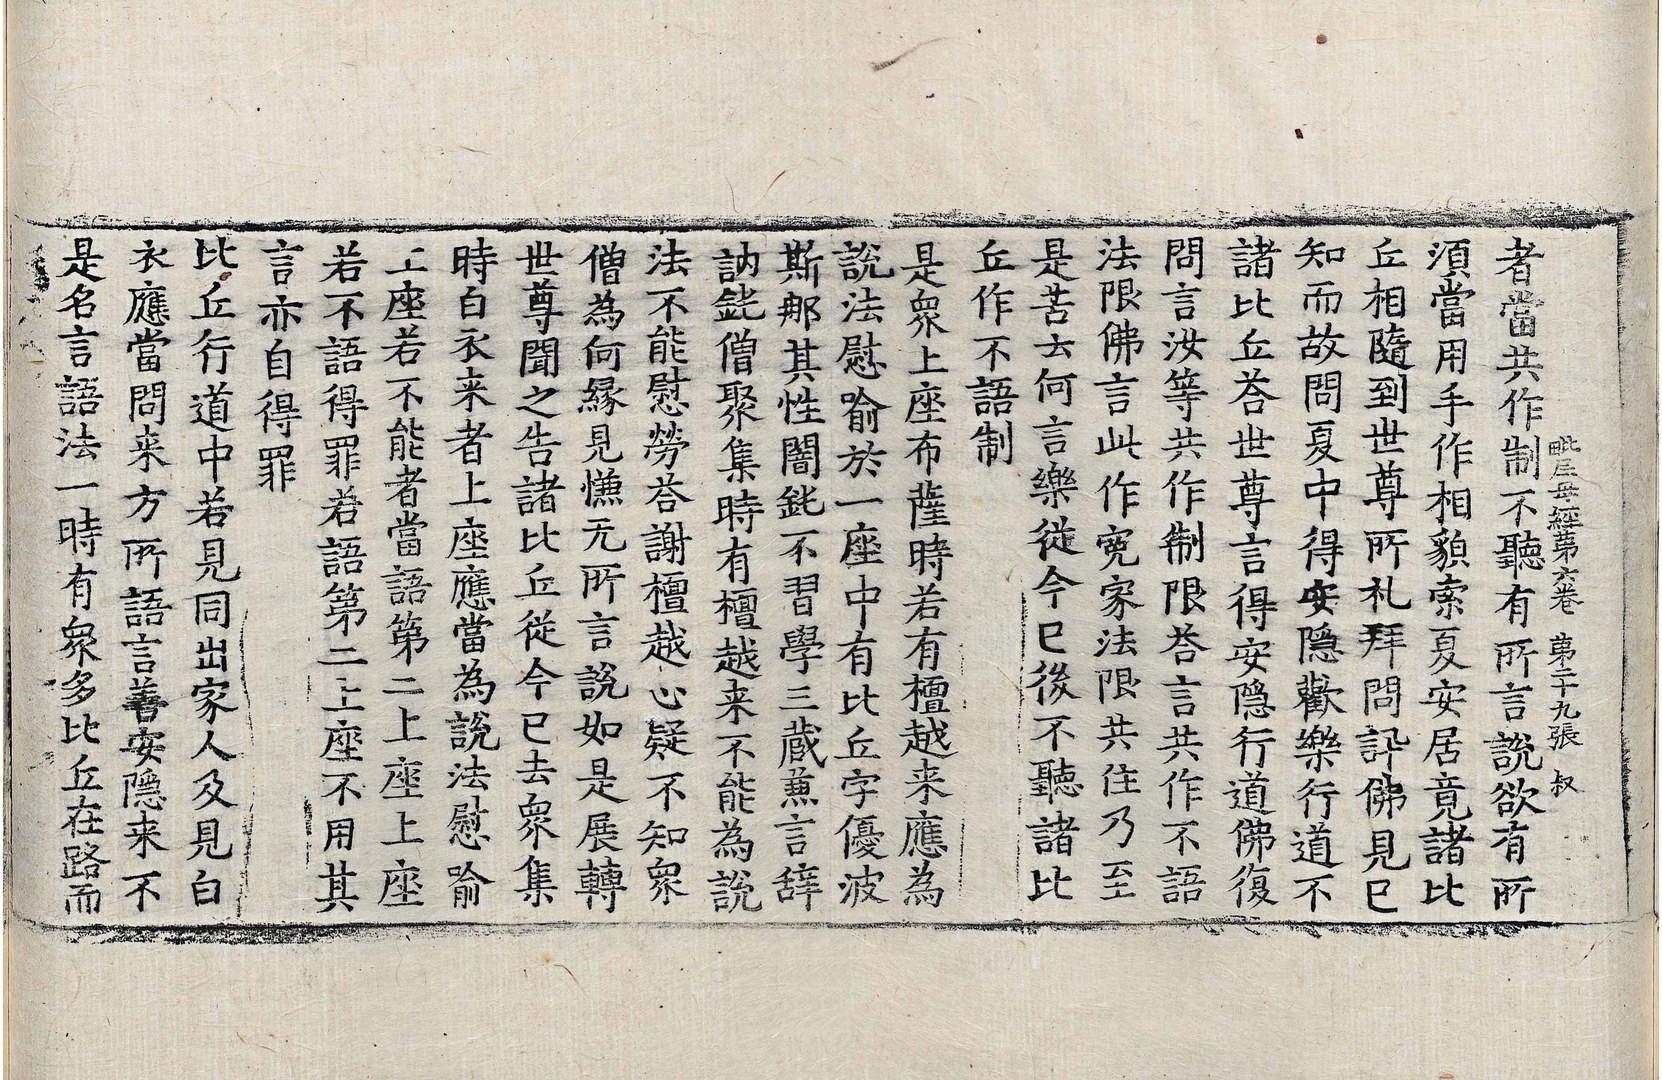 毗尼母經第六卷 第二十九張 叔
者當共作制不聽有所言說欲有所
須當用手作相貌索夏安居竟諸比
丘相隨到世尊所礼拜問訊佛見已
知而故問夏中得安隱歡樂行道不
諸比丘荅世尊言得安隱行道佛復
問言汝等共作制限荅言共作不語
法限佛言此作寃家法限共住乃至
是苦去何言樂從今已後不聽諸比
丘作不語制
是衆上座布薩時若有檀越来應為
說法慰喻於一座中有比丘字優波
斯那其性闇鈍不習學三藏兼言辞
訥鈍僧聚集時有檀越来不能為說
法不能慰勞荅謝檀越心疑不知衆
僧為何緣見慊无所言說如是展轉
世尊聞之告諸比丘從今已去衆集
時白衣来者上座應當為說法慰喻
上座若不能者當語第二上座上座
若不語得罪若語第二上座不用其
言亦自得罪
比丘行道中若見同出家人及見白
衣應當問来方所語言善安隱来不
是名言語法一時有衆多比丘在路而